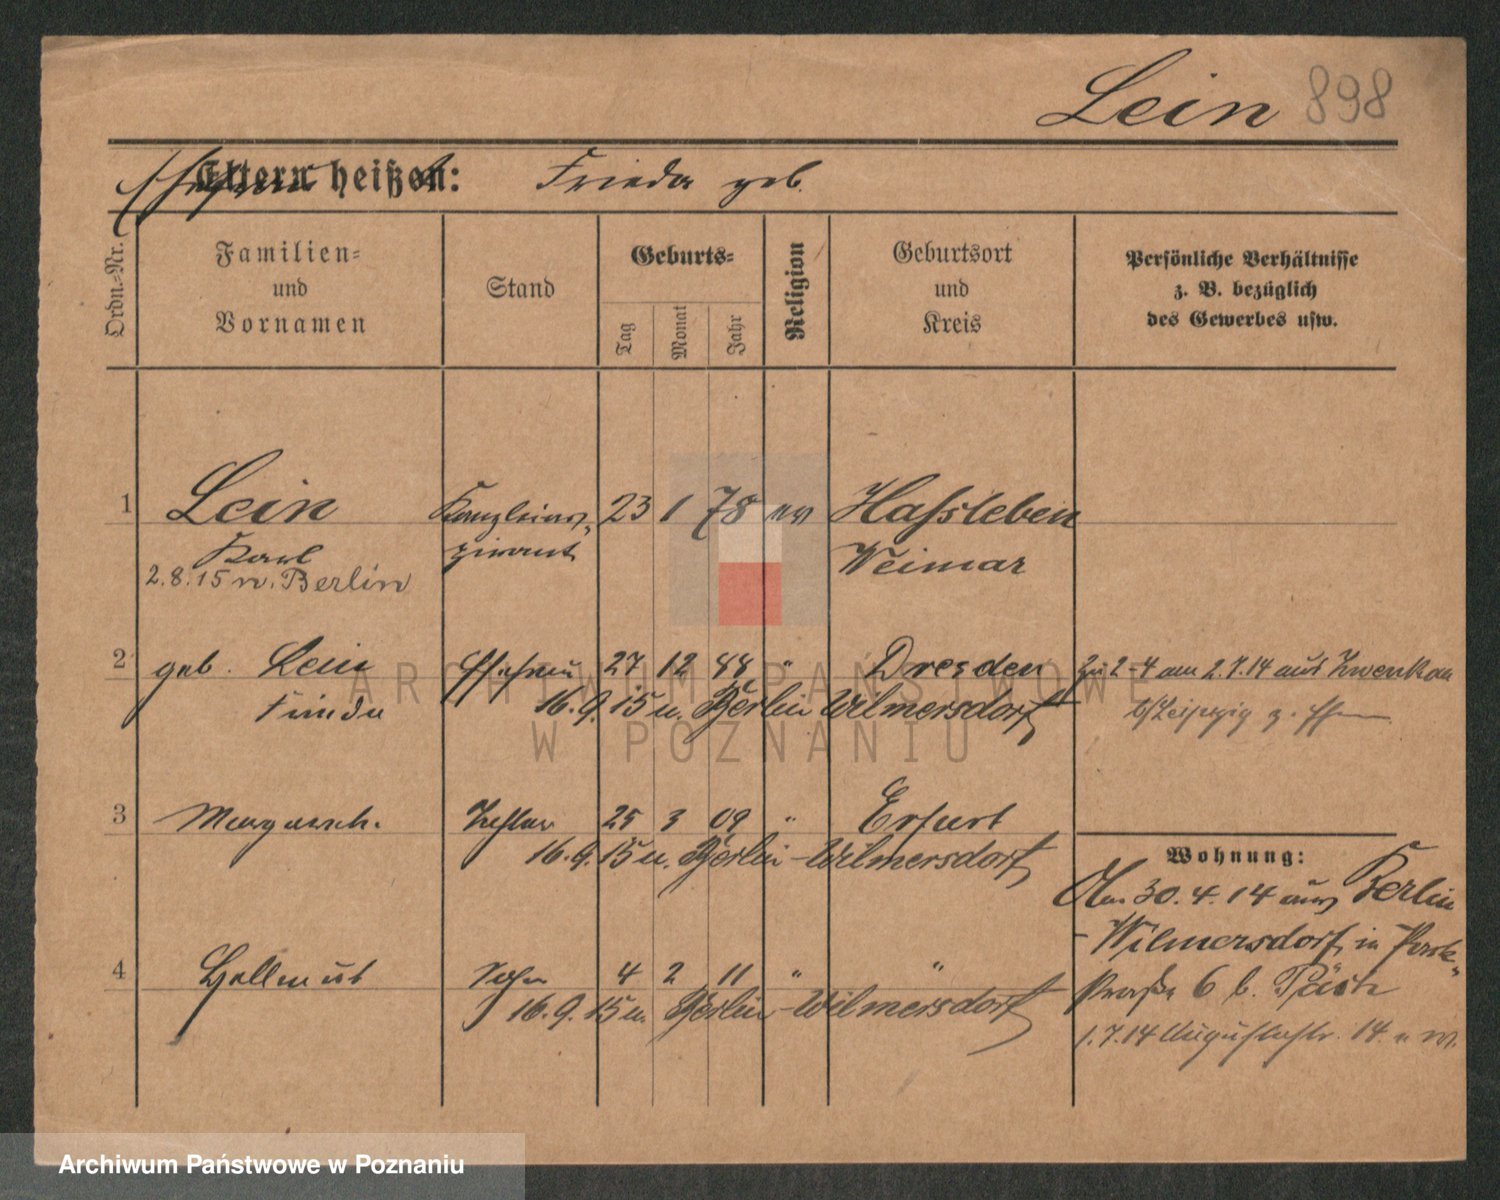 Lein 898
Ehefrau heißt: Frieda geb.
Ordn.-Nr.
Familien-
und
Vornamen
Stand
Geburts-
Tag
Monat
Jahr
Religion
Geburtsort
und
Kreis
Persönliche Verhältnisse
z. B. bezüglich
des Gewerbes usw.
1 Lein 23 1 78 ev Hassleben
Karl Weimar
2.8.15 n. Berlin
2 geb. Lein Ehefrau 27 12 88 " Dresden Zu 2-4 am 2.7.14 aus Zwenkau
Frieda 16.9.15 n. Berlin Wilmersdorf b/Leipzig z.
3 Margareth. Tochter 25 3 09 " Erfurt
16.9.15 n. Berlin-Wilmersdorf
Wohnung:
Am 30.4.14 aus Berlin
-Wilmersdorf, in Park-
4 Hellmut Sohn 4 2 11 " "
straße 6 b.
16.9.15 n. Berlin-Wilmersdorf
1.7.14 Augustastr. 14.
ARCHIWUM PAŃSTWOWE
W POZNANIU
Archiwum Państwowe w Poznaniu